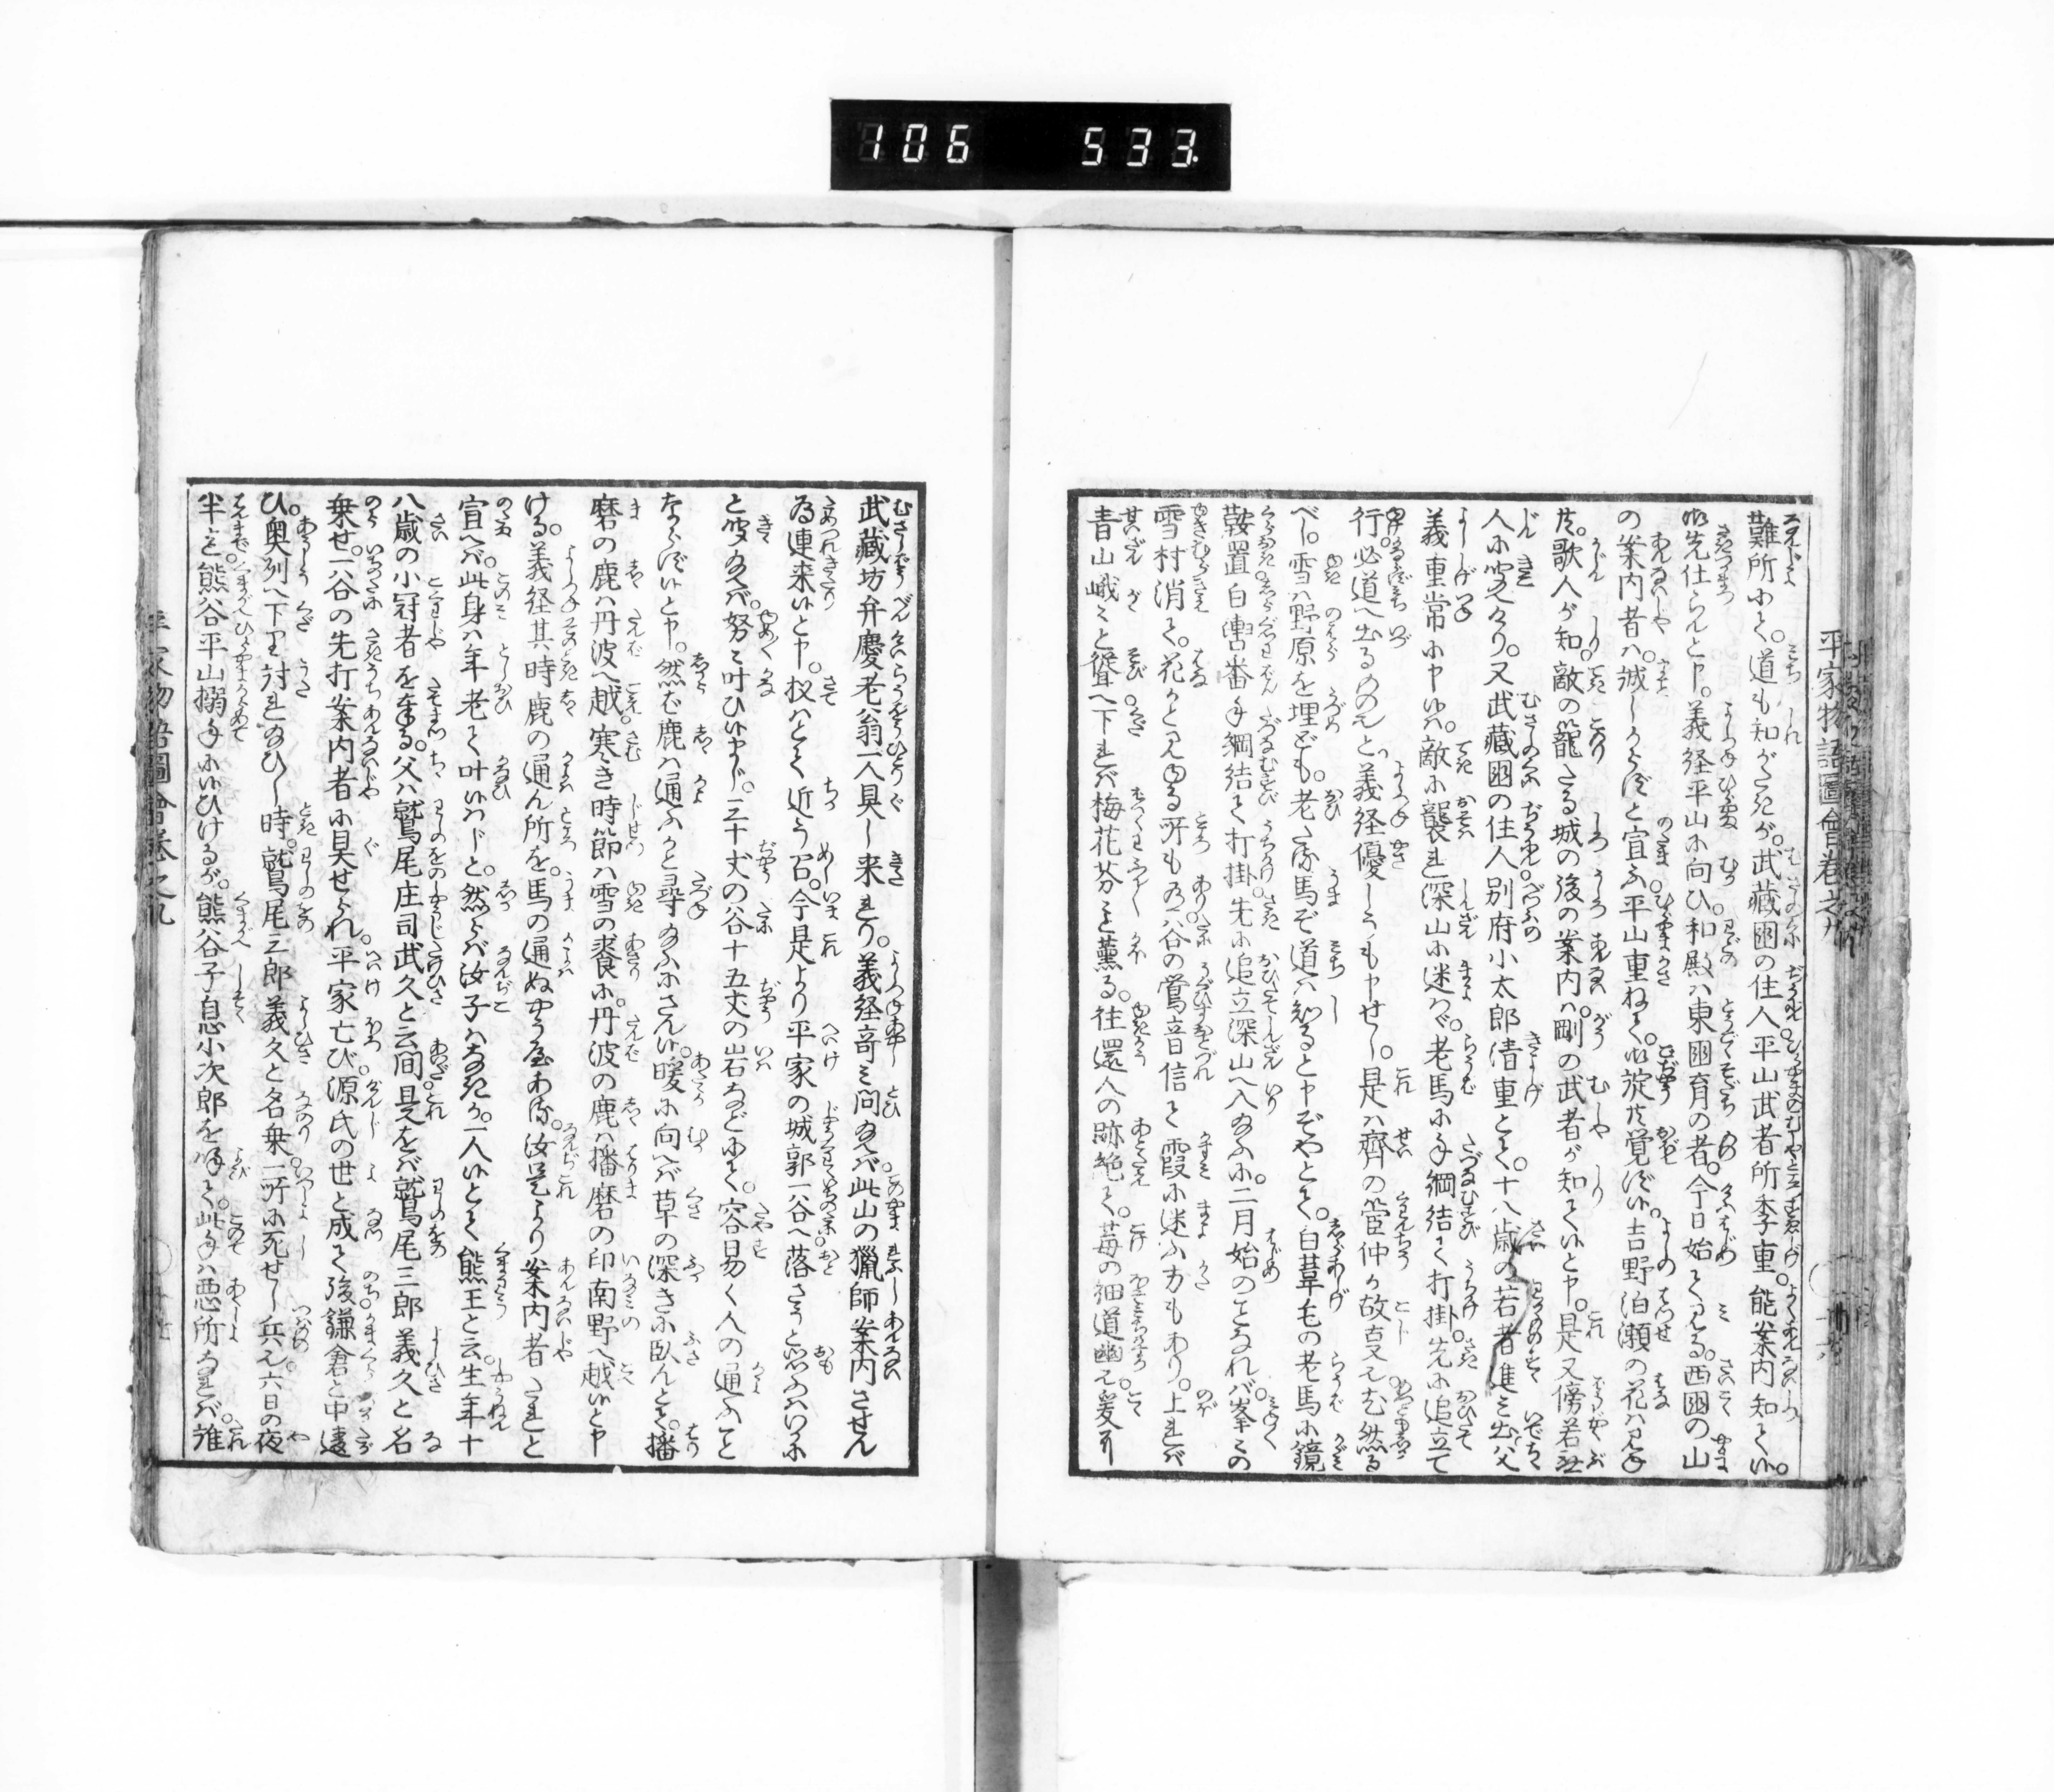 106 533
平家物語圖會巻之九
難所にて。道も知がたきが。武藏國の住人平山武者所季重。能案内知て候。
御先仕らんと申。義経平山に向ひ。和殿ハ東國育の者。今日始て見る。西國の山
の案内者ハ。誠しからずと宣ふ平山重ねて。御諚共覚ず候。吉野泊瀬の花ハ見ね
共。歌人が知。敵の籠たる城の後の案内ハ。剛の武者が知て候と申。是又傍若無
人に聞えけり。又武藏國の住人別府小太郎清重とて。十八歳の若者進ミ出父
義重常に申候ハ。敵に襲れ深山に迷ハゞ。老馬に手綱結て打掛。先に追立て
行。必道へ出るものぞと。義経優しうも申せし。是ハ齊の管仲が故事
べし。雪ハ野原を埋ども。老たる馬ぞ道ハ知ると申ぞやとて。白葦毛の老馬に鏡
鞍置白轡番手綱結て打掛。先に追立深山へ入給ふに。二月始のことなれバ。峯々の
雪村消て。花かと見ゆる所もあり。谷の鶯音信て霞に迷ふ方もあり。上れバ
青山峨々と聳へ下れバ梅花芬々と薫る。往還人の跡絶て。苺の細道幽に。爰に
武藏坊弁慶老翁一人具し来れり。義経奇ミ問給へバ。此山の獵師案内させん
為連来候と申。扨ハとて近う召。今是より平家の城郭一谷へ落さうと思ふハいかに
と聞給へバ。努々叶ひ候まじ。三十丈の谷十五丈の岩などにて。容易く人の通ふこと
ならず候と申。然バ鹿ハ通ふかと尋給ふにさん候。暖に向へバ草の深きに臥んとて。播
磨の鹿ハ丹波へ越。寒き時節ハ雪の餐に。丹波の鹿ハ播磨の印南野へ越候と申
ける。義経其時鹿の通ん所を。馬の通ぬやう屋ある。汝是より案内者たれと
宣へバ。此身ハ年老て叶候ハじと。然らバ汝子ハなきか。一人候とて熊王と云。生年十
八歳の小冠者を奉る。父ハ鷲尾庄司武久と云間是をバ鷲尾三郎義久と名
乗せ。一谷の先打案内者に具せられ。平家亡び。源氏の世と成て後鎌倉と中違
ひ。奥列へ下り討れ給ひし時。鷲尾三郎義久と名乗。一所に死せし兵也。六日の夜
半迄。熊谷平山搦手に候ひけるが。熊谷子息小次郎を呼て。此手ハ悪所なれバ。誰
平家物語圖會巻之九